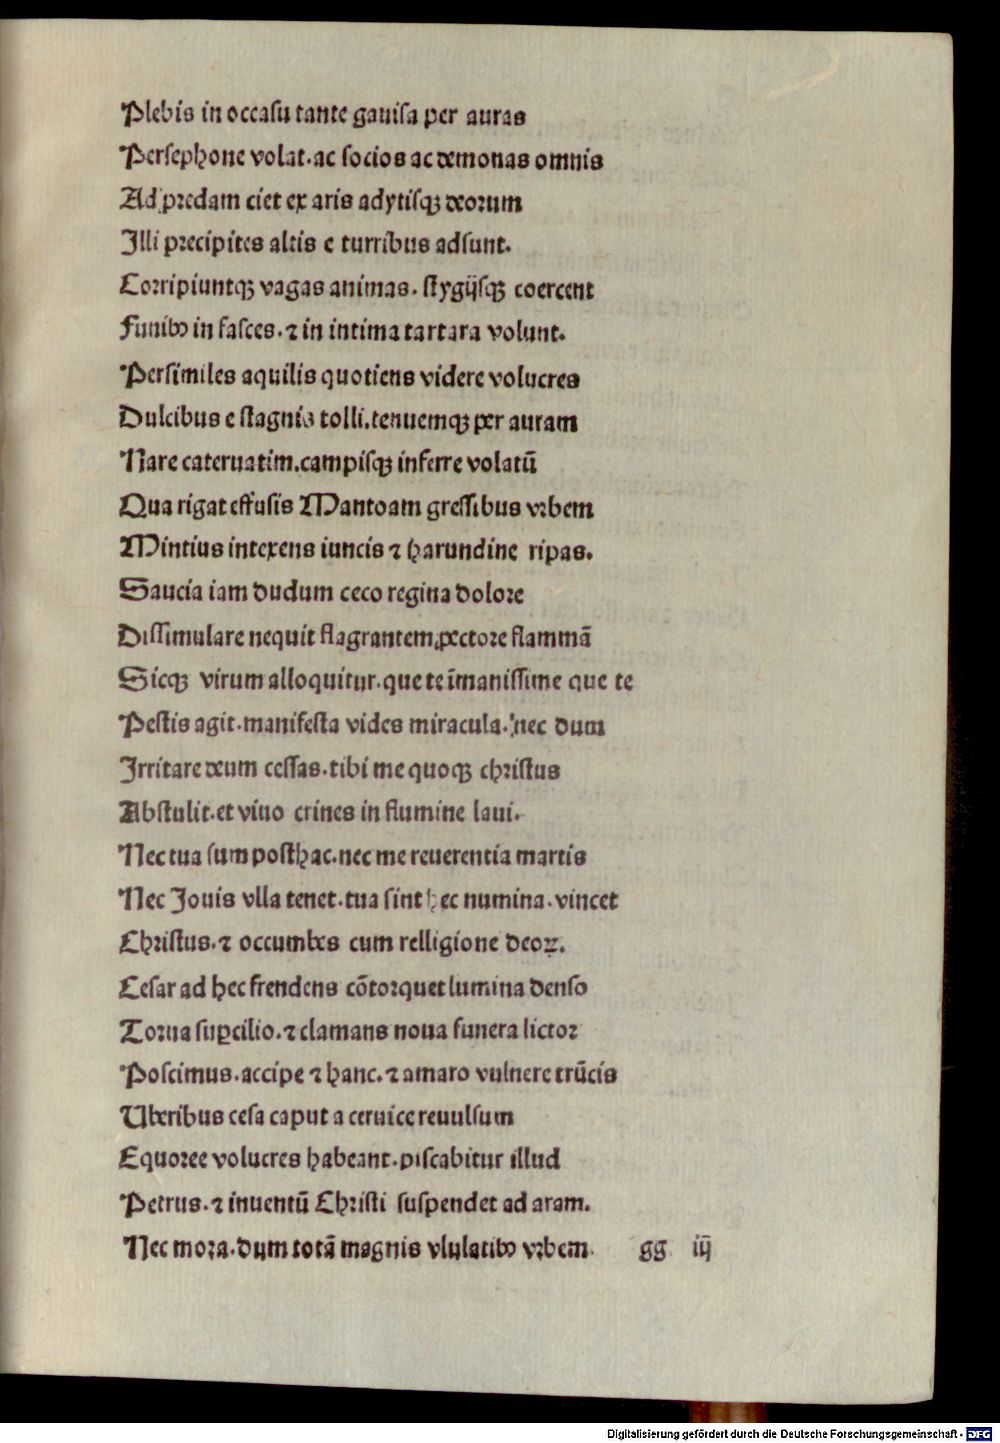 Plebis in occasu tante gauisa per auras
Persephone volat. ac socios ac demonas omnis
Ad predam ciet ex aris adytisqꝫ deorum
Illi precipites altis e turribus adsunt.
Corripiuntqꝫ vagas animas. stygijsqꝫ coercent
Funibꝰ in fasces. ⁊ in intima tartara volunt.
Persimiles aquilis quotiens videre volucres
Dulcibus e stagnis tolli. tenuemqꝫ per auram
Nare cateruatim. campisqꝫ inferre volatū
Qua rigat effusis Mantoam gressibus vrbem
Mintius intexens iuncis ⁊ harundine ripas.
Saucia iam dudum ceco regina dolore
Dissimulare nequit flagrantem pectore flammā
Sicqꝫ virum alloquitur. que te īmanissime que te
Pestis agit. manifesta vides miracula. nec dum
Irritare deum cessas. tibi me quoqꝫ christus
Abstulit. et viuo crines in flumine laui.
Nec tua sum posthac. nec me reuerentia martis
Nec Jouis vlla tenet. tua sint hec numina. vincet
Christus. ⁊ occumbes cum relligione deoꝝ.
Cesar ad hec frendens cōtorquet lumina denso
Torua suꝑcilio. ⁊ clamans noua funera lictor
Poscimus. accipe ⁊ hanc. ⁊ amaro vulnere trūcis
Uberibus cesa caput a ceruice reuulsum
Equoree volucres habeant. piscabitur illud
Petrus. ⁊ inuentū Christi suspendet ad aram.
Nec mora. dum totā magnis vlulatibꝰ vrbem gg iij
Digitalisierung gefördert durch die Deutsche Forschungsgemeinschaft - DFG